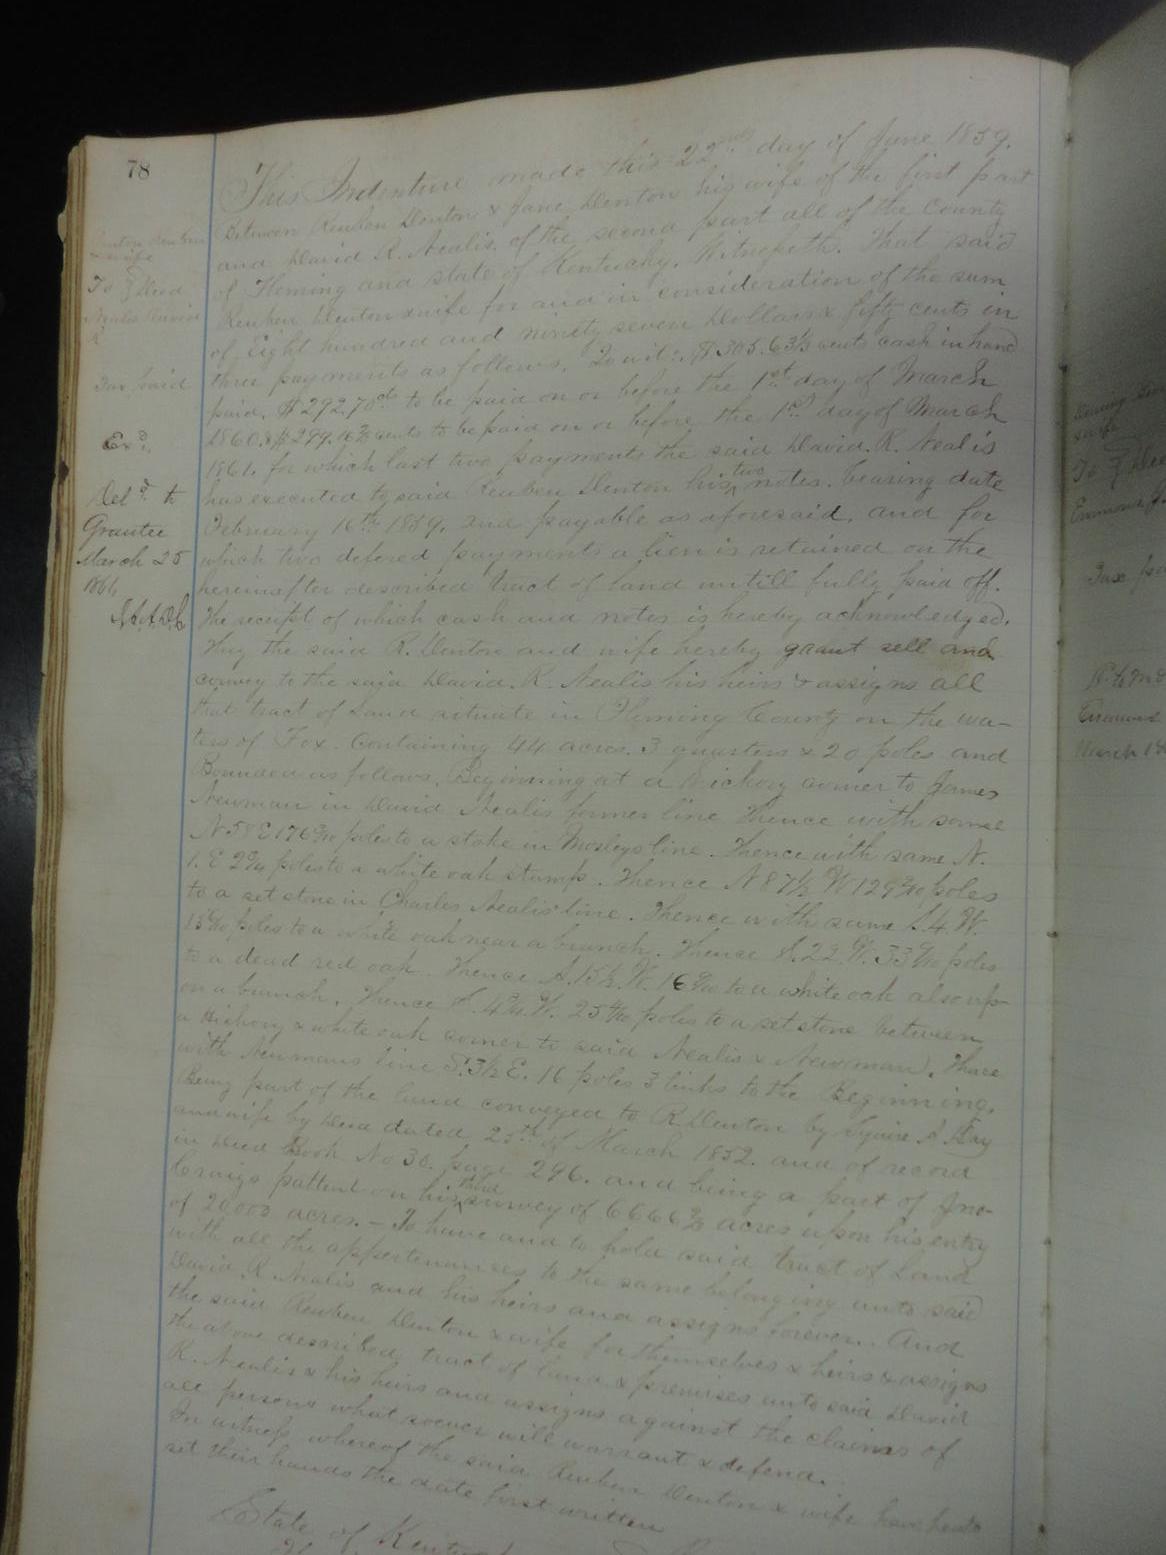 78
This Indenture made this 22nd day of June 1859.
Between Reuben Denton & Jane Denton his wife of the first part
and David R. Nealis, of the second part all of the County
of Fleming and state of Kentucky. Witnesseth. That said
Reuben Denton & wife for and in consideration of the sum
of Eight hundred and ninety seven Dollars & fifty cents in
three payments as follows. To wit: $305.63⅓ cents cash in hand
paid. $292.70cts to be paid on or before the 1st day of March
1860. & $299.16⅔ cents to be paid on or before the 1st day of March
1861. for which last two payments the said David. R. Nealis
has executed to said Reuben Denton his two notes. bearing date
February 16th 1859. and payable as aforesaid. and for
which two defered payments a lien is retained on the
hereinafter described tract of land untill fully paid off.
The receipt of which cash and notes is hereby acknowledged.
They the said R. Denton and wife hereby grant sell and
convey to the said David. R. Nealis his heirs & assigns all
that tract of Land situate in Fleming County on the wa-
ters of Fox. Containing 44 acres. 3 quarters & 20 poles and
Bounded as follows. Beginning at a hickory corner to James
Newman in David Nealis former line Thence with same
N 58 E 176 poles to a stake in Mosleys line. Thence with same N.
1. E 2 poles to a white oak stump. Thence N 87½ W 129 poles
to a set stone in Charles Nealis' line. Thence with same S. 4 W.
15 poles to a white oak near a branch. Thence S. 22. W. 33 poles
to a dead red oak. Thence S. 15½. W. 16 to a white oak also up-
on a branch. Thence S. W. 25 poles to a set stone between
a Hickory & white oak corner to said Nealis & Newman. Thence
with Newmans line S. 3½ E. 16 poles 3 links to the Beginning.
Being part of the land conveyed to R Denton by Squire
and wife by Deed dated 25th of March 1852. and of record
in Deed Book No 30. page 296. and being a part of Jno
Craigs pattent on his third survey of 6666⅔ acres upon his entry
of 20,000 acres. - To have and to hold said tract of Land
with all the appertenances to the same belonging unto said
David. R. Nealis and his heirs and assigns forever. And
the said Reuben Denton & wife for themselves & heirs & assigns
the above described tract of land & premises unto said David
R. Nealis & his heirs and assigns against the claims of
all persons what soever will warrant & defend.
In witness whereof the said Reuben Denton & wife have hereto
set their hands the date first written
State of Kentucky
Denton Reuben
& wife
To } Deed
Nealis David
R
Tax paid
Exd.
Deld. to
Grantee
March 25
1861